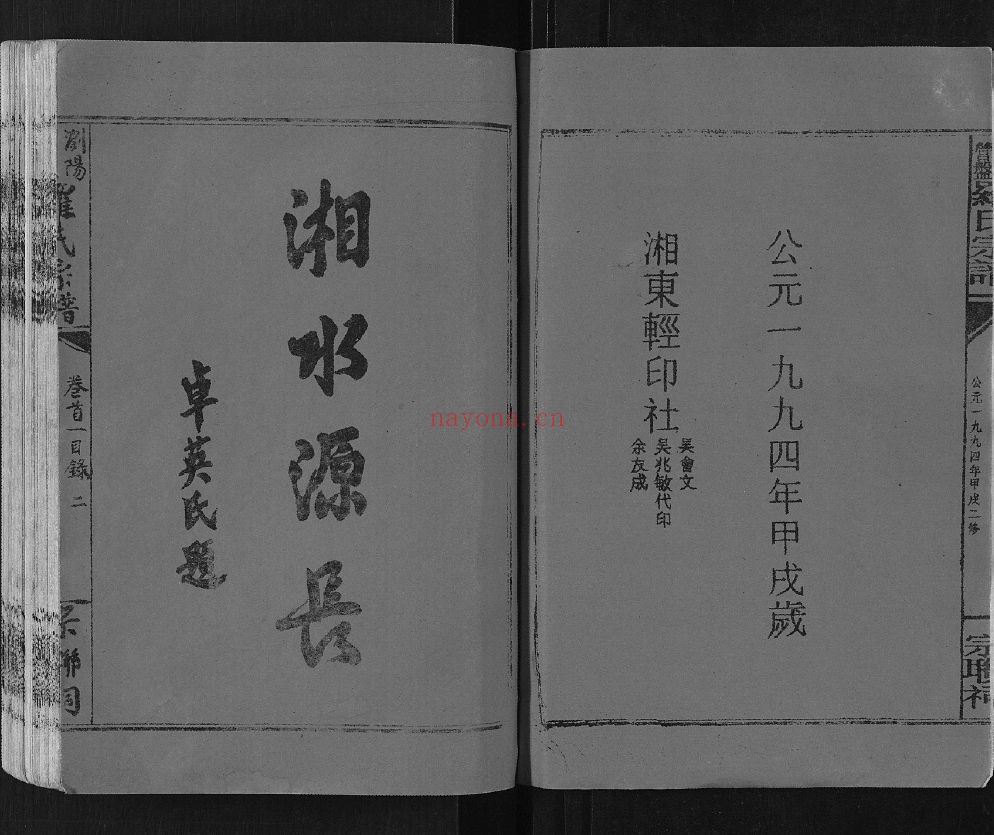 營盤羅氏宗譜
公元一九九四年甲戌二修
宗聯祠
公元一九九四年甲戌歲
湘東輕印社
吴會文
吴兆敏代印
余友成
湘水源長
卓英氏題
瀏陽
羅氏宗譜
卷首一目錄 二
宗聯祠
nayona.cn